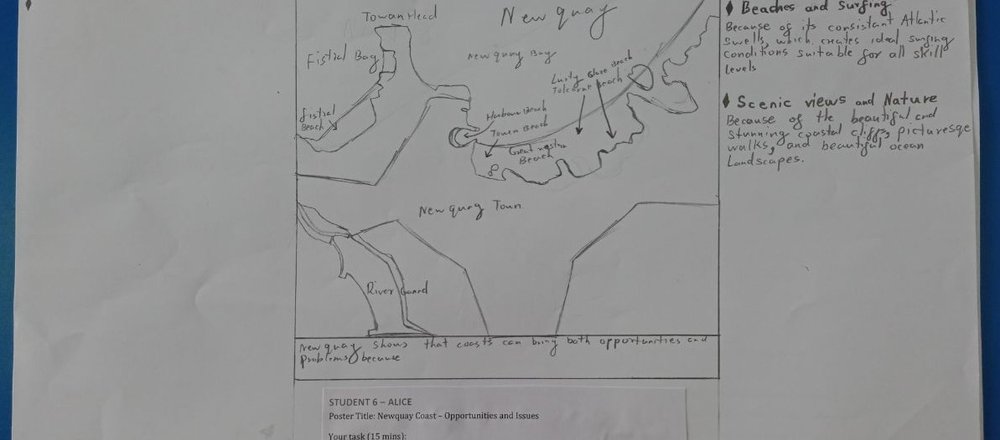 Towan Head
Newquay
Fistral Bay
Newquay Bay
Lusty Glaze Beach
Tolcarne Beach
Fistral
Beach
Harbour Beach
Towan Beach
Great
Beach
Newquay Town
River
Newquay shows that coasts can bring both opportunities and
problems because
Beaches and Surfing
Because of its consistant Atlantic
Swells, which creates ideal surfing
Conditions suitable for all skill
levels
Scenic views and Nature
Because of the beautiful and
Stunning coastal cliffs, picturesqe
walks, and beautiful ocean
Landscapes.
STUDENT 6 – ALICE
Poster Title: Newquay Coast – Opportunities and Issues
Your task (15 mins):